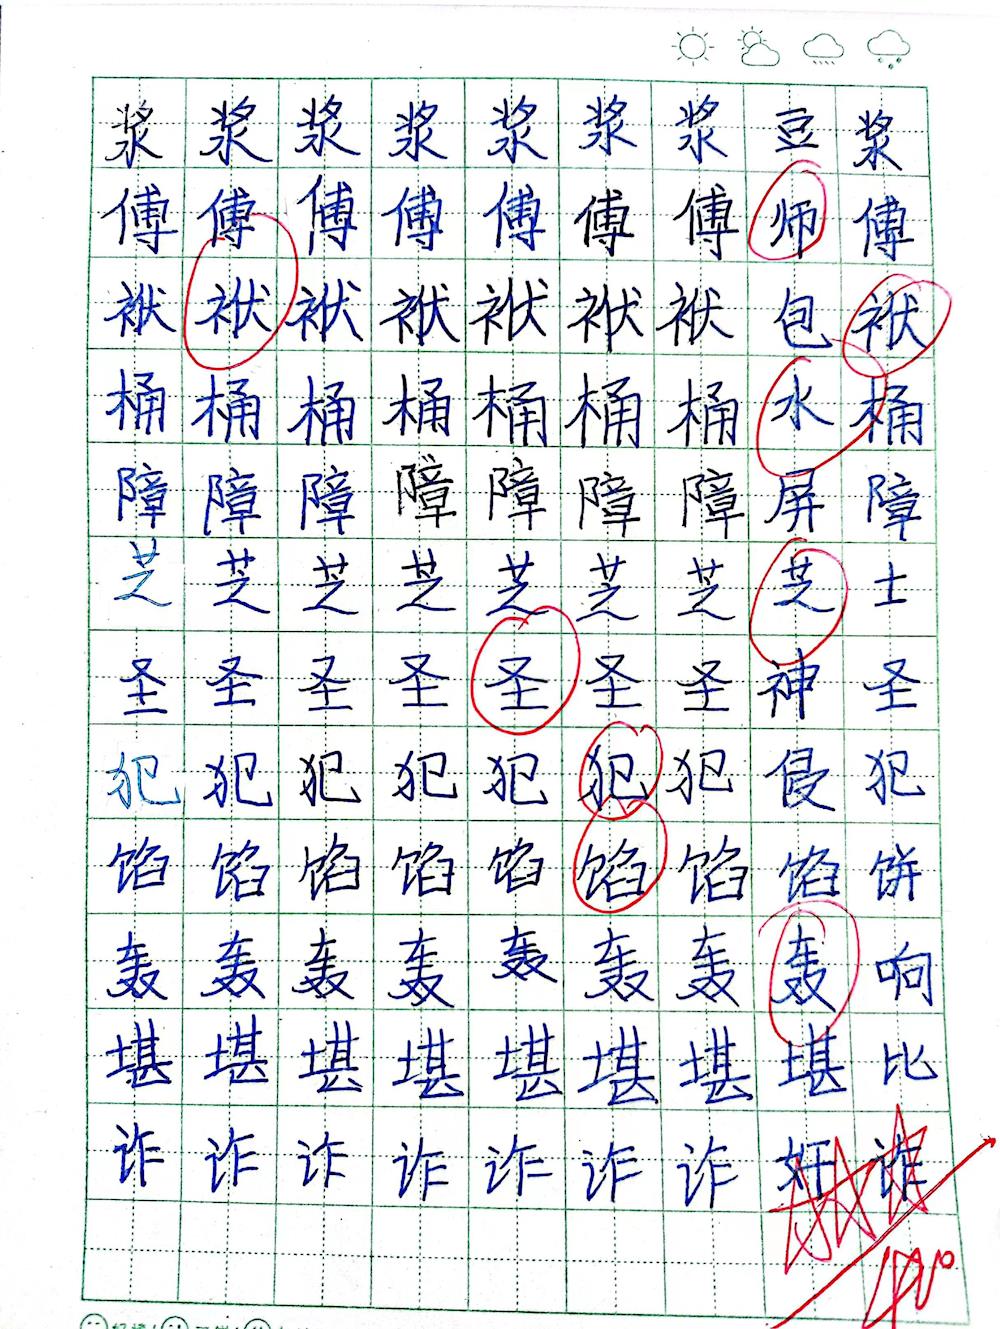 浆浆浆浆浆浆浆豆浆
傅傅傅傅傅傅傅师傅
袱袱袱袱袱袱袱包袱
桶桶桶桶桶桶桶水桶
障障障障障障障屏障
芝芝芝芝芝芝芝芝士
圣圣圣圣圣圣圣神圣
犯犯犯犯犯犯犯侵犯
馅馅馅馅馅馅馅馅饼
轰轰轰轰轰轰轰轰响
堪堪堪堪堪堪堪堪比
诈诈诈诈诈诈诈奸诈